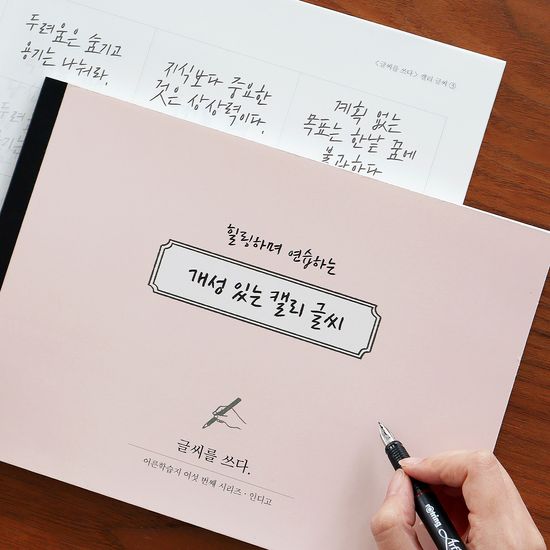 두려움은 숨기고
용기는 나눠라.
지식보다 중요한
것은 상상력이다.
<글씨를 쓰다> 캘리 글씨 ③
계획 없는
목표는 한낱 꿈에
불과하다
힐링하며 연습하는
개성 있는 캘리 글씨
글씨를 쓰다.
어른학습지 여섯 번째 시리즈 · 인디고